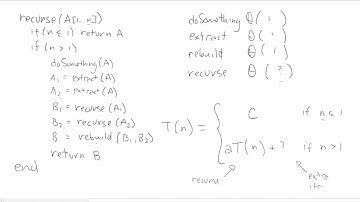 recurse(A[1..n])
if(n ≤ 1) return A
if (n > 1)
doSomething(A)
A₁ = extract(A)
A₂ = extract(A)
B₁ = recurse(A₁)
B₂ = recurse(A₂)
B = rebuild(B₁,B₂)
return B
end
doSomething Θ(1)
extract Θ(1)
rebuild Θ(1)
recurse Θ(?)
T(n) = { C if n ≤ 1
2T(n) + ? if n > 1
recurse
extra